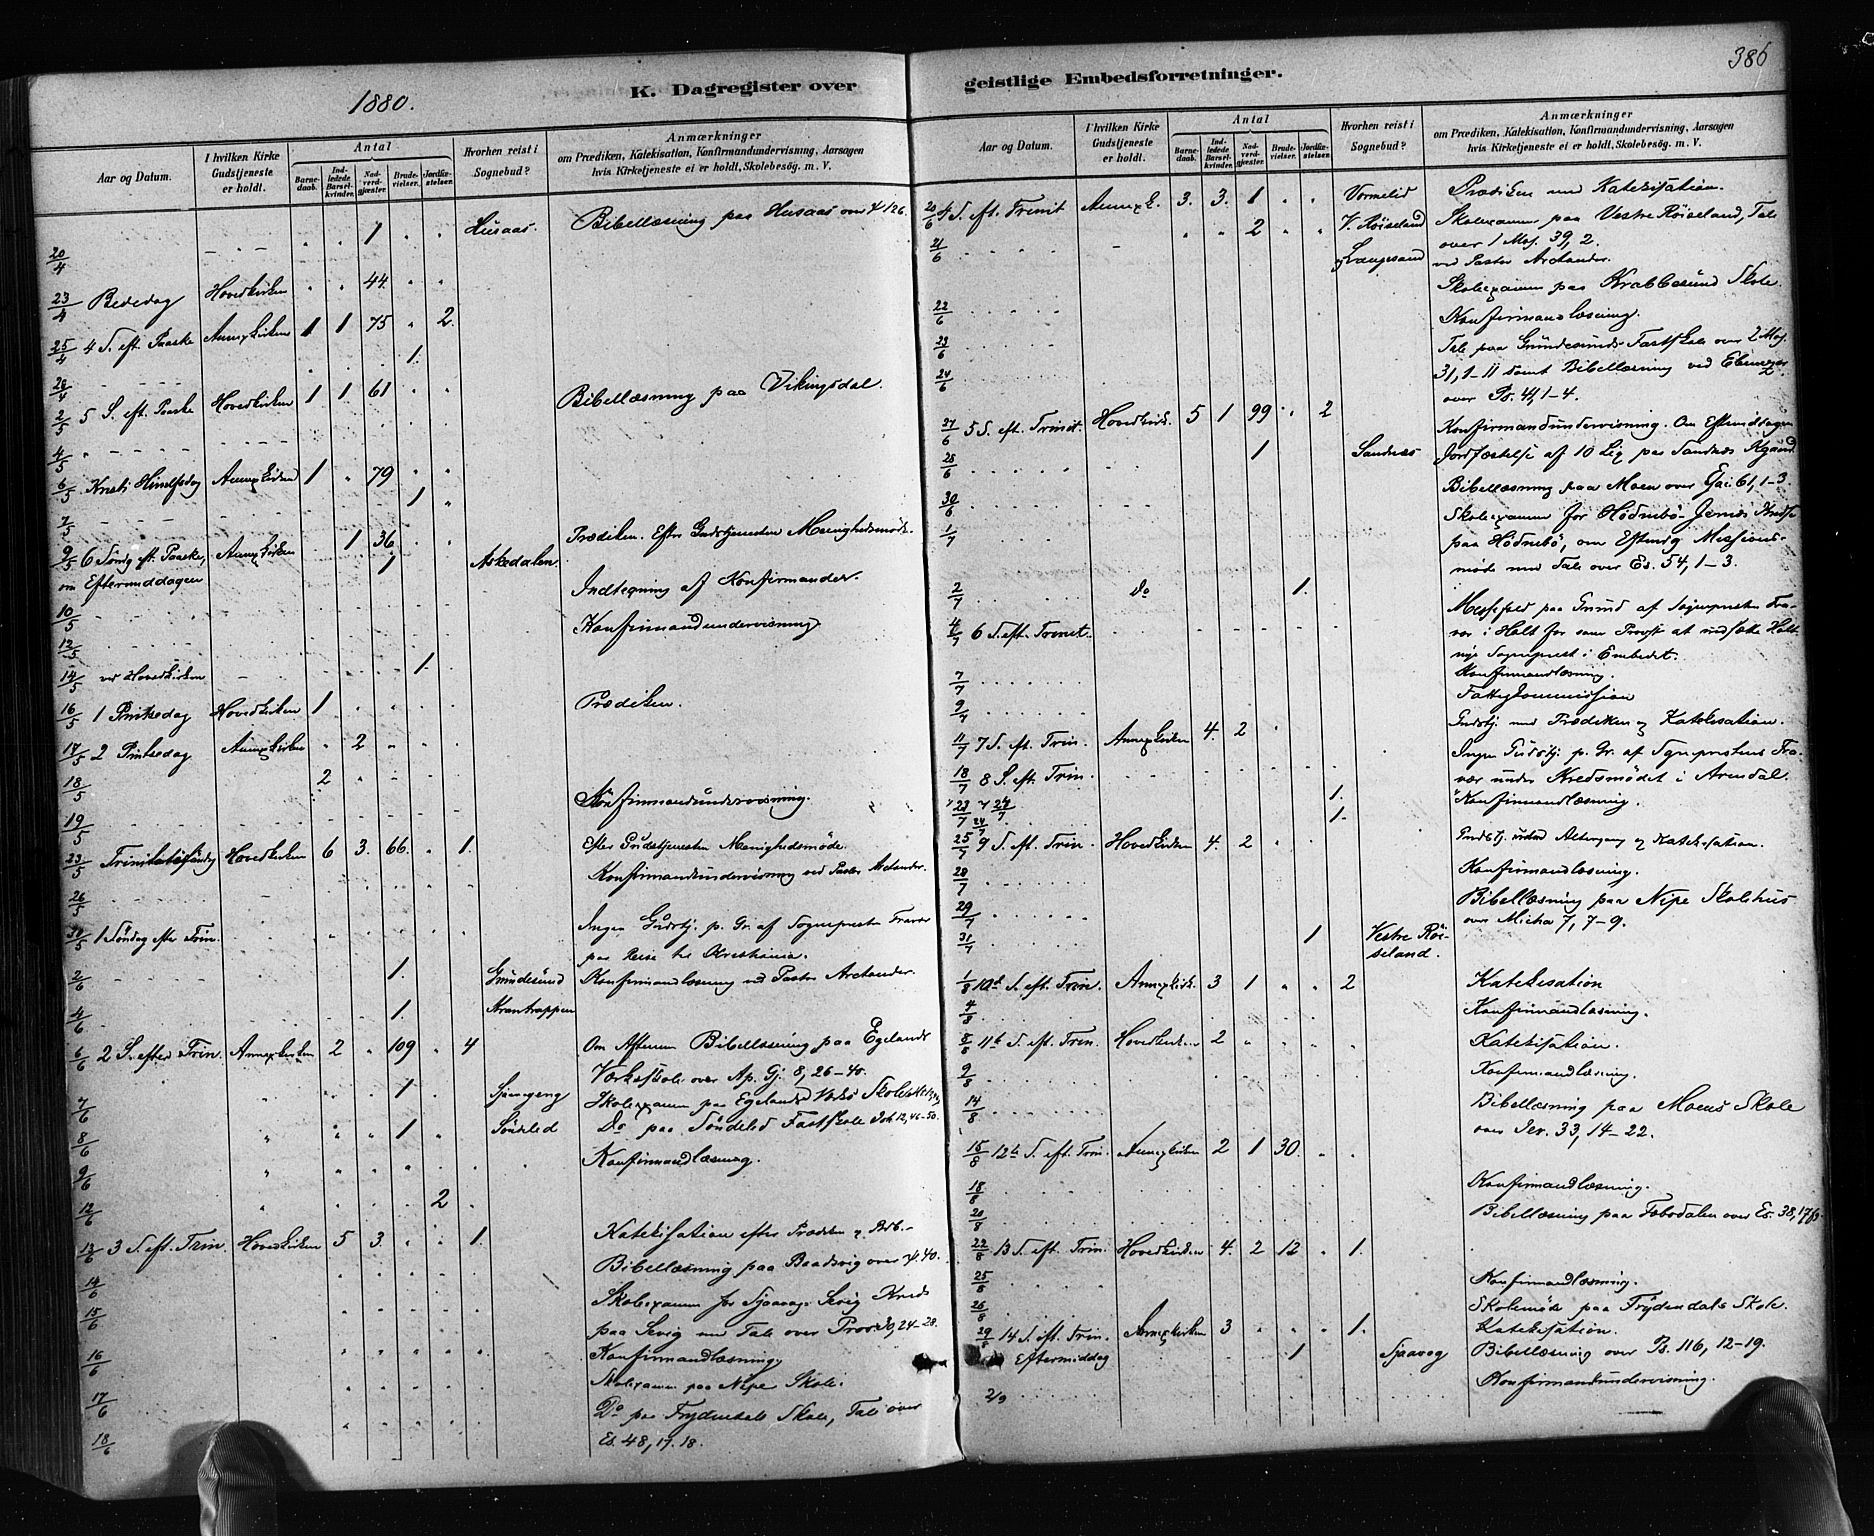 1880.
K. Dagregister over
Aar og Datum.
I hvilken Kirke Gudstjeneste er holdt.
Antal
Barnedaab.
Indledede Barselkvinder.
Nadverdgjæster.
Brudevielser.
Jordfæstelser.
Hvorhen reist i Sognebud?
Anmærkninger
om Prædiken, Katekisation, Konfirmandundervisning, Aarsagen
hvis Kirketjeneste ei er holdt, Skolebesög. m. V.
20/4 1 Husaas. Bibellæsning paa Husaas over ψ 126.
23/4 Bededag Hovedkirken 44
25/4 4 S. eft. Paaske Annexkirken 1 1 75 2.
28/4 1.
2/5 5 S. eft. Paaske Hovedkirken 1 1 61
4/5 Bibellæsning paa Vikingsdal.
6/5 Kristi Himlfsdag Annexkirken 1 79
7/5 1
9/5 6 Söndg eft. Paaske, Annexkirken 1 36 Prædiken. Efter Gudstjenesten Menighedsmöde.
om Eftermiddagen 1 Askedalen.
10/5 Indtegning af Konfirmander.
12/5 Konfirmandundervisning
14/5 ved Hovedkirken 1.
16/5 1 Pintsedag Hovedkirken 1 Prædiken.
17/5 2 Pintsedag Annexkirken 2
18/5 2
19/5 Konfirmandundervisning.
23/5 Trinitatissöndag Hovedkirken 6 3. 66. 1. Efter Gudstjenesten Menighedsmöde.
26/5 Konfirmandundervisning ved Pastor Arctander.
30/5 1 Söndag efter Trin. Ingen Gudstj. p. Gr. af Sognepresten Fravær
paa Reise til Kristiania.
2/6 1. Grundesund Konfirmandlæsning ved Pastor Arctander.
4/6 1. Strantrappen
6/6 2 S. efter Trin. Annexkirken 2 109 4 Om Aftenen Bibellæsning paa Egelands
Værksskole over Ap. Gj. 8, 26-40.
7/6 1 Skolexamen paa Egelands Værks Skole
8/6 1 Söndeled Do paa Söndeled Fastskole Joh 12, 46-50.
9/6 Konfirmandlæsning.
12/6 2
13/6 3 S. eft. Trin. Hovedkirken 5 3. 1. Katekisation efter Prædiken
14/6 Bibellæsning paa Baadsvig over ψ. 40.
15/6 Skolexamen for Sjaavaag Sevig Kreds
paa Sevig med Tale over Prov. 30, 24-28.
16/6 Konfirmandlæsning.
17/6 Skolexamen paa Nipe Skole.
18/6 Do paa Frydendals Skole, Tale over
Es. 48, 17. 18.
386
geistlige Embedsforretninger.
Aar og Datum.
I hvilken Kirke Gudstjeneste er holdt.
Antal
Barnedaab.
Indledede Barselkvinder.
Nadverdgjæster.
Brudevielser.
Jordfæstelser.
Hvorhen reist i Sognebud?
Anmærkninger
om Prædiken, Katekisation, Konfirmandundervisning, Aarsagen
hvis Kirketjeneste ei er holdt, Skolebesög. m. V.
20/6 4 S. eft. Trinit Annexk. 3. 3. 1 Vormelid Prædiken med Katekisation.
21/6 2 V. Röiseland Skolexamen paa Vestre Röiseland, Tale
over 1 Mos. 39, 2.
Langesand ved Pastor Arctander.
22/6 Skolexamen paa Krabbesund Skole.
23/6 Konfirmandlæsning.
24/6 Tale paa Grundesunds Fastskole over 2 Mos.
31, 1-11 samt Bibellæsning ved Ebenezer
over Ps. 41, 1-4.
27/6 5 S. eft. Trinit. Hovedkirk. 5 1 99 2 Konfirmandundervisning. Om Eftermiddagen
28/6 1 Sandnæs Jordfæstelse af 10 Lig paa Sandnæs Kgaard.
30/6 Bibellæsning paa Moen over Esai. 61, 1-3.
1/7 Skolexamen for Hödnebö-Jernes Kreds
paa Hödnebö, om Eftermdg Missions-
möde med Tale over Es. 54, 1-3.
2/7 Do 1.
4/7 6 S. eft. Trinit. Messefald paa Grund af Sognepresten Fra-
vær i Holt for som Provst at indsætte Holts
nye Sogneprest i Embedet.
7/7 Konfirmandlæsning.
9/7 Fattigkommission
11/7 7 S. eft. Trin. Annexkirken 4. 2 Gudstj. med Prædiken og Katekisation.
18/7 8 S. eft. Trin. Ingen Gudstj. p. Gr. af Sognprestens Fra-
vær under Kredsmödet i Arendal.
1. Konfirmandlæsning.
24/7 1.
25/7 9 S. eft. Trin. Hovedkirken 4. 2 Gudstj. uden Altergang og Katekisation.
28/7 Konfirmandlæsning.
29/7 Bibellæsning paa Nipe Skolehus
over Micha 7, 7-9.
31/7 1 Vestre Röi-
seland.
1/8 10de S. eft. Trin. Annexkirk. 3 1 2 Katekisation
4/8 Konfirmandlæsning.
8/8 11te S. eft. Trin. Hovedkirken 2 Katekisation.
9/8 Konfirmandlæsning.
14/8 Bibellæsning paa Moens Skole
over Jer. 33, 14-22.
15/8 12te S. eft. Trin. Annexkirken 2 1 30.
18/8 Konfirmandlæsning.
20/8 Bibellæsning paa Fabodalen over Es. 38, 17
22/8 13 S. eft. Trin. Hovedkirken 4. 2 12 1.
25/8 Konfirmandlæsning.
26/8 Skolemöde paa Frydendals Skole.
29/8 14 S. eft. Trin. Annexkirken 3 1. Katekisation.
Eftermiddag 1 Sjaavog Bibellæsning over Ps. 116, 12-19.
2/9 Konfirmandundervisning.